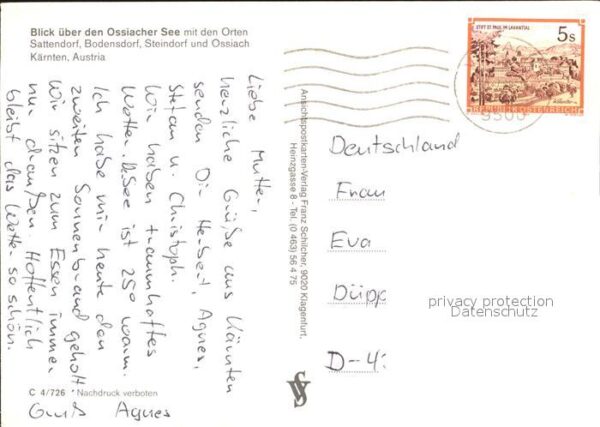 Blick über den Ossiacher See mit den Orten
Sattendorf, Bodensdorf, Steindorf und Ossiach
Kärnten, Austria
Liebe Mutter,
herzliche Grüße aus Kärnten
senden Dir Herbert, Agnes,
Stefan u. Christoph.
Wir haben traumhaftes
Wetter. See ist 25° warm.
Ich habe mir heute den
zweiten Sonnenbrand geholt
Wir sitzen zum Essen immer
nur draußen. Hoffentlich
bleibt das Wetter so schön.
Gruß Agnes
C 4/726 · Nachdruck verboten
Ansichtspostkarten-Verlag Franz Schilcher, 9020 Klagenfurt,
Heinzgasse 8 - Tel. (0 463) 56 4 75
STIFT ST. PAUL IM LAVANTTAL
5s
REPUBLIK ÖSTERREICH
9500
Deutschland
Frau
Eva
Düpp
D-4
privacy protection
Datenschutz